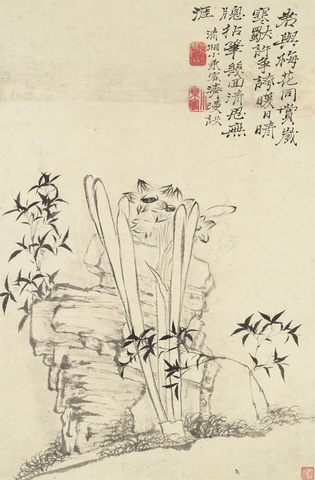 與梅花同賞歲
寒許爭誇暖日晴
窻拈筆幾回清思無
涯
清湘小乘客濟漫設